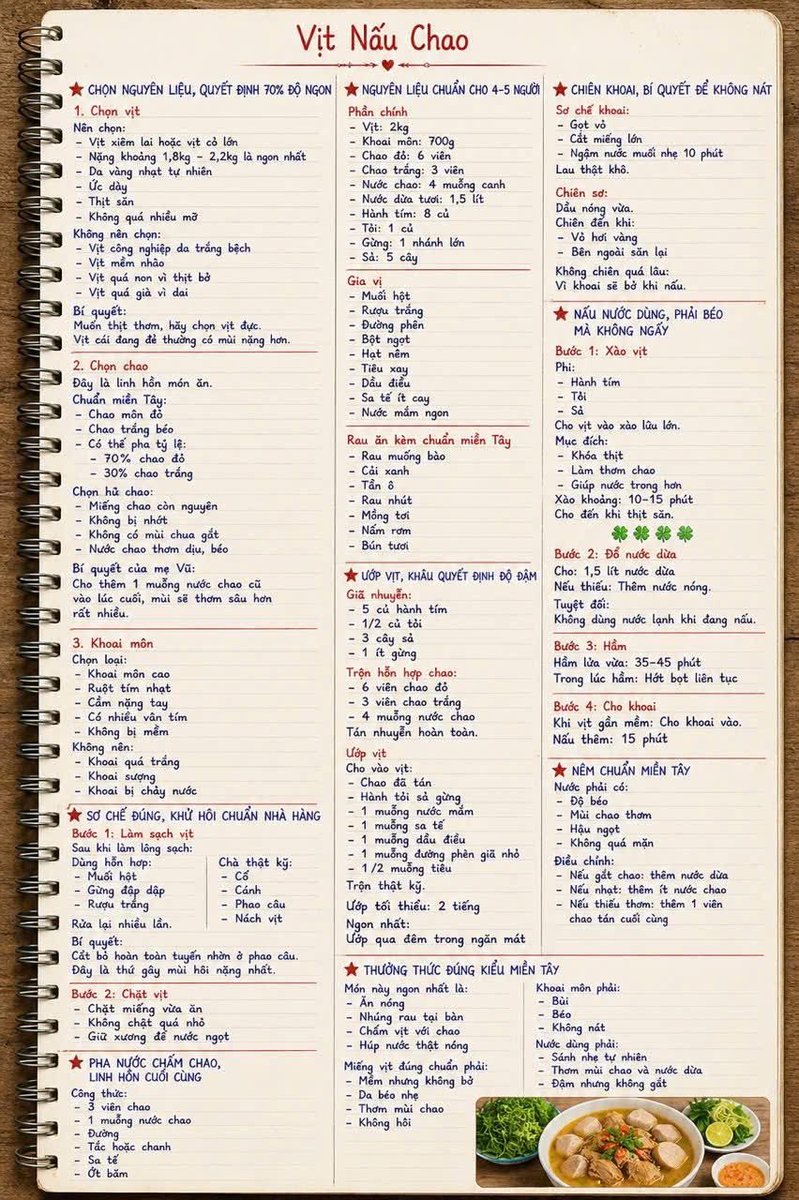 Vịt Nấu Chao
★ CHỌN NGUYÊN LIỆU, QUYẾT ĐỊNH 70% ĐỘ NGON
1. Chọn vịt
Nên chọn:
- Vịt xiêm lai hoặc vịt cỏ lớn
- Nặng khoảng 1,8kg - 2,2kg là ngon nhất
- Da vàng nhạt tự nhiên
- Ức dày
- Thịt săn
- Không quá nhiều mỡ
Không nên chọn:
- Vịt công nghiệp da trắng bệch
- Vịt mềm nhão
- Vịt quá non vì thịt bở
- Vịt quá già vì dai
Bí quyết:
Muốn thịt thơm, hãy chọn vịt đực.
Vịt cái đang đẻ thường có mùi nặng hơn.
2. Chọn chao
Đây là linh hồn món ăn.
Chuẩn miền Tây:
- Chao môn đỏ
- Chao trắng béo
- Có thể pha tỷ lệ:
- 70% chao đỏ
- 30% chao trắng
Chọn hũ chao:
- Miếng chao còn nguyên
- Không bị nhớt
- Không có mùi chua gắt
- Nước chao thơm dịu, béo
Bí quyết của mẹ Vũ:
Cho thêm 1 muỗng nước chao cũ
vào lúc cuối, mùi sẽ thơm sâu hơn
rất nhiều.
3. Khoai môn
Chọn loại:
- Khoai môn cao
- Ruột tím nhạt
- Cầm nặng tay
- Có nhiều vân tím
- Không bị mềm
Không nên:
- Khoai quá trắng
- Khoai sượng
- Khoai bị chảy nước
★ SƠ CHẾ ĐÚNG, KHỬ HÔI CHUẨN NHÀ HÀNG
Bước 1: Làm sạch vịt
Sau khi làm lông sạch:
Dùng hỗn hợp:
- Muối hột
- Gừng đập dập
- Rượu trắng
Chà thật kỹ:
- Cổ
- Cánh
- Phao câu
- Nách vịt
Rửa lại nhiều lần.
Bí quyết:
Cắt bỏ hoàn toàn tuyến nhờn ở phao câu.
Đây là thứ gây mùi hôi nặng nhất.
Bước 2: Chặt vịt
- Chặt miếng vừa ăn
- Không chặt quá nhỏ
- Giữ xương để nước ngọt
★ PHA NƯỚC CHẤM CHAO,
LINH HỒN CUỐI CÙNG
Công thức:
- 3 viên chao
- 1 muỗng nước chao
- Đường
- Tắc hoặc chanh
- Sa tế
- Ớt băm
★ NGUYÊN LIỆU CHUẨN CHO 4-5 NGƯỜI
Phần chính
- Vịt: 2kg
- Khoai môn: 700g
- Chao đỏ: 6 viên
- Chao trắng: 3 viên
- Nước chao: 4 muỗng canh
- Nước dừa tươi: 1,5 lít
- Hành tím: 8 củ
- Tỏi: 1 củ
- Gừng: 1 nhánh lớn
- Sả: 5 cây
Gia vị
- Muối hột
- Rượu trắng
- Đường phèn
- Bột ngọt
- Hạt nêm
- Tiêu xay
- Dầu điều
- Sa tế ít cay
- Nước mắm ngon
Rau ăn kèm chuẩn miền Tây
- Rau muống bào
- Cải xanh
- Tần ô
- Rau nhút
- Mồng tơi
- Nấm rơm
- Bún tươi
★ ƯỚP VỊT, KHÂU QUYẾT ĐỊNH ĐỘ ĐẬM
Giã nhuyễn:
- 5 củ hành tím
- 1/2 củ tỏi
- 3 cây sả
- 1 ít gừng
Trộn hỗn hợp chao:
- 6 viên chao đỏ
- 3 viên chao trắng
- 4 muỗng nước chao
Tán nhuyễn hoàn toàn.
Ướp vịt
Cho vào vịt:
- Chao đã tán
- Hành tỏi sả gừng
- 1 muỗng nước mắm
- 1 muỗng sa tế
- 1 muỗng dầu điều
- 1 muỗng đường phèn giã nhỏ
- 1/2 muỗng tiêu
Trộn thật kỹ.
Ướp tối thiểu: 2 tiếng
Ngon nhất:
Ướp qua đêm trong ngăn mát
★ CHIÊN KHOAI, BÍ QUYẾT ĐỂ KHÔNG NÁT
Sơ chế khoai:
- Gọt vỏ
- Cắt miếng lớn
- Ngâm nước muối nhẹ 10 phút
Lau thật khô.
Chiên sơ:
Dầu nóng vừa.
Chiên đến khi:
- Vỏ hơi vàng
- Bên ngoài săn lại
Không chiên quá lâu:
Vì khoai sẽ bở khi nấu.
★ NẤU NƯỚC DÙNG, PHẢI BÉO
MÀ KHÔNG NGẤY
Bước 1: Xào vịt
Phi:
- Hành tím
- Tỏi
- Sả
Cho vịt vào xào lửa lớn.
Mục đích:
- Khóa thịt
- Làm thơm chao
- Giúp nước trong hơn
Xào khoảng: 10-15 phút
Cho đến khi thịt săn.
Bước 2: Đổ nước dừa
Cho: 1,5 lít nước dừa
Nếu thiếu: Thêm nước nóng.
Tuyệt đối:
Không dùng nước lạnh khi đang nấu.
Bước 3: Hầm
Hầm lửa vừa: 35-45 phút
Trong lúc hầm: Hớt bọt liên tục
Bước 4: Cho khoai
Khi vịt gần mềm: Cho khoai vào.
Nấu thêm: 15 phút
★ NÊM CHUẨN MIỀN TÂY
Nước phải có:
- Độ béo
- Mùi chao thơm
- Hậu ngọt
- Không quá mặn
Điều chỉnh:
- Nếu gắt chao: thêm nước dừa
- Nếu nhạt: thêm ít nước chao
- Nếu thiếu thơm: thêm 1 viên
chao tán cuối cùng
★ THƯỞNG THỨC ĐÚNG KIỂU MIỀN TÂY
Món này ngon nhất là:
- Ăn nóng
- Nhúng rau tại bàn
- Chấm vịt với chao
- Húp nước thật nóng
Miếng vịt đúng chuẩn phải:
- Mềm nhưng không bở
- Da béo nhẹ
- Thơm mùi chao
- Không hôi
Khoai môn phải:
- Bùi
- Béo
- Không nát
Nước dùng phải:
- Sánh nhẹ tự nhiên
- Thơm mùi chao và nước dừa
- Đậm nhưng không gắt